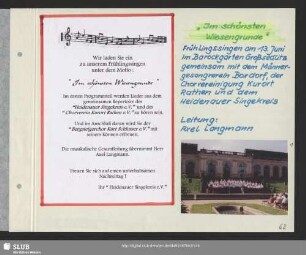 Wir laden Sie ein
zu unserem Frühlingssingen
unter dem Motto:
"Im schönsten Wiesengrunde"
Im ersten Programmteil werden Lieder aus dem
gemeinsamen Repertoire des
"Heidenauer Singekreis e.V." und des
"Chorverein Kurort Rathen e.V." zu hören sein.
Und im Anschluß daran wird Sie der
mit
seinem Können erfreuen.
Die musikalische Gesamtleitung übernimmt Herr
Axel Langmann.
Freuen Sie sich auf einen unterhaltsamen
Nachmittag !
Ihr "Heidenauer Singekreis e.V."
"Im schönsten
Wiesengrunde"
Frühlingssingen am 13. Juni
im Barockgarten Großsedlitz
gemeinsam mit dem Männer-
gesangverein Bardorf, der
Chorvereinigung Kurort
Rathen und dem
Heidenauer Singekreis
Leitung:
Axel Langmann
62
SLUB